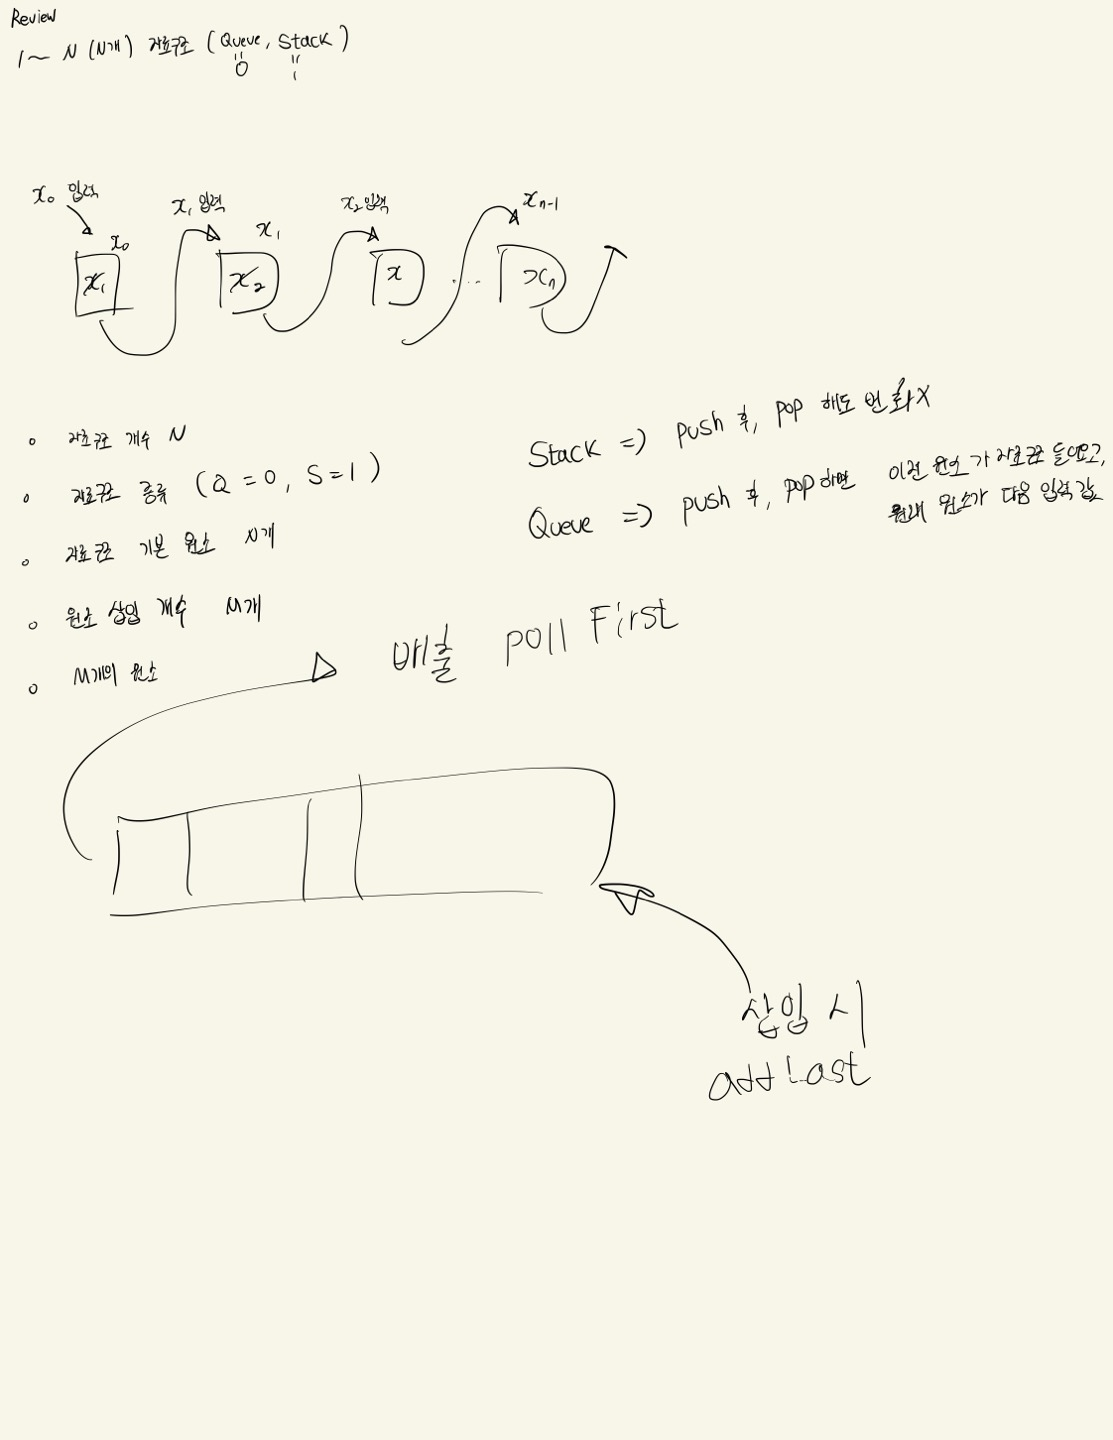 Review
1~ N (N개) 자료구조 (Queue, Stack)
" "
0 1
x₀ 입력
x₁ 입력
x₂ 입력
xₙ₋₁
x₀
x₁
x₁
x₂
x
...
xₙ
◦ 자료구조 개수 N
◦ 자료구조 종류 (Q = 0, S = 1)
◦ 자료구조 기본 원소 N개
◦ 원소 삽입 개수 M개
◦ M개의 원소
Stack => push 후, pop 해도 변화X
Queue => push 후, pop하면 이전 원소가 자료구조 들어오고,
원래 원소가 다음 입력값
배출 poll First
삽입 시
add Last